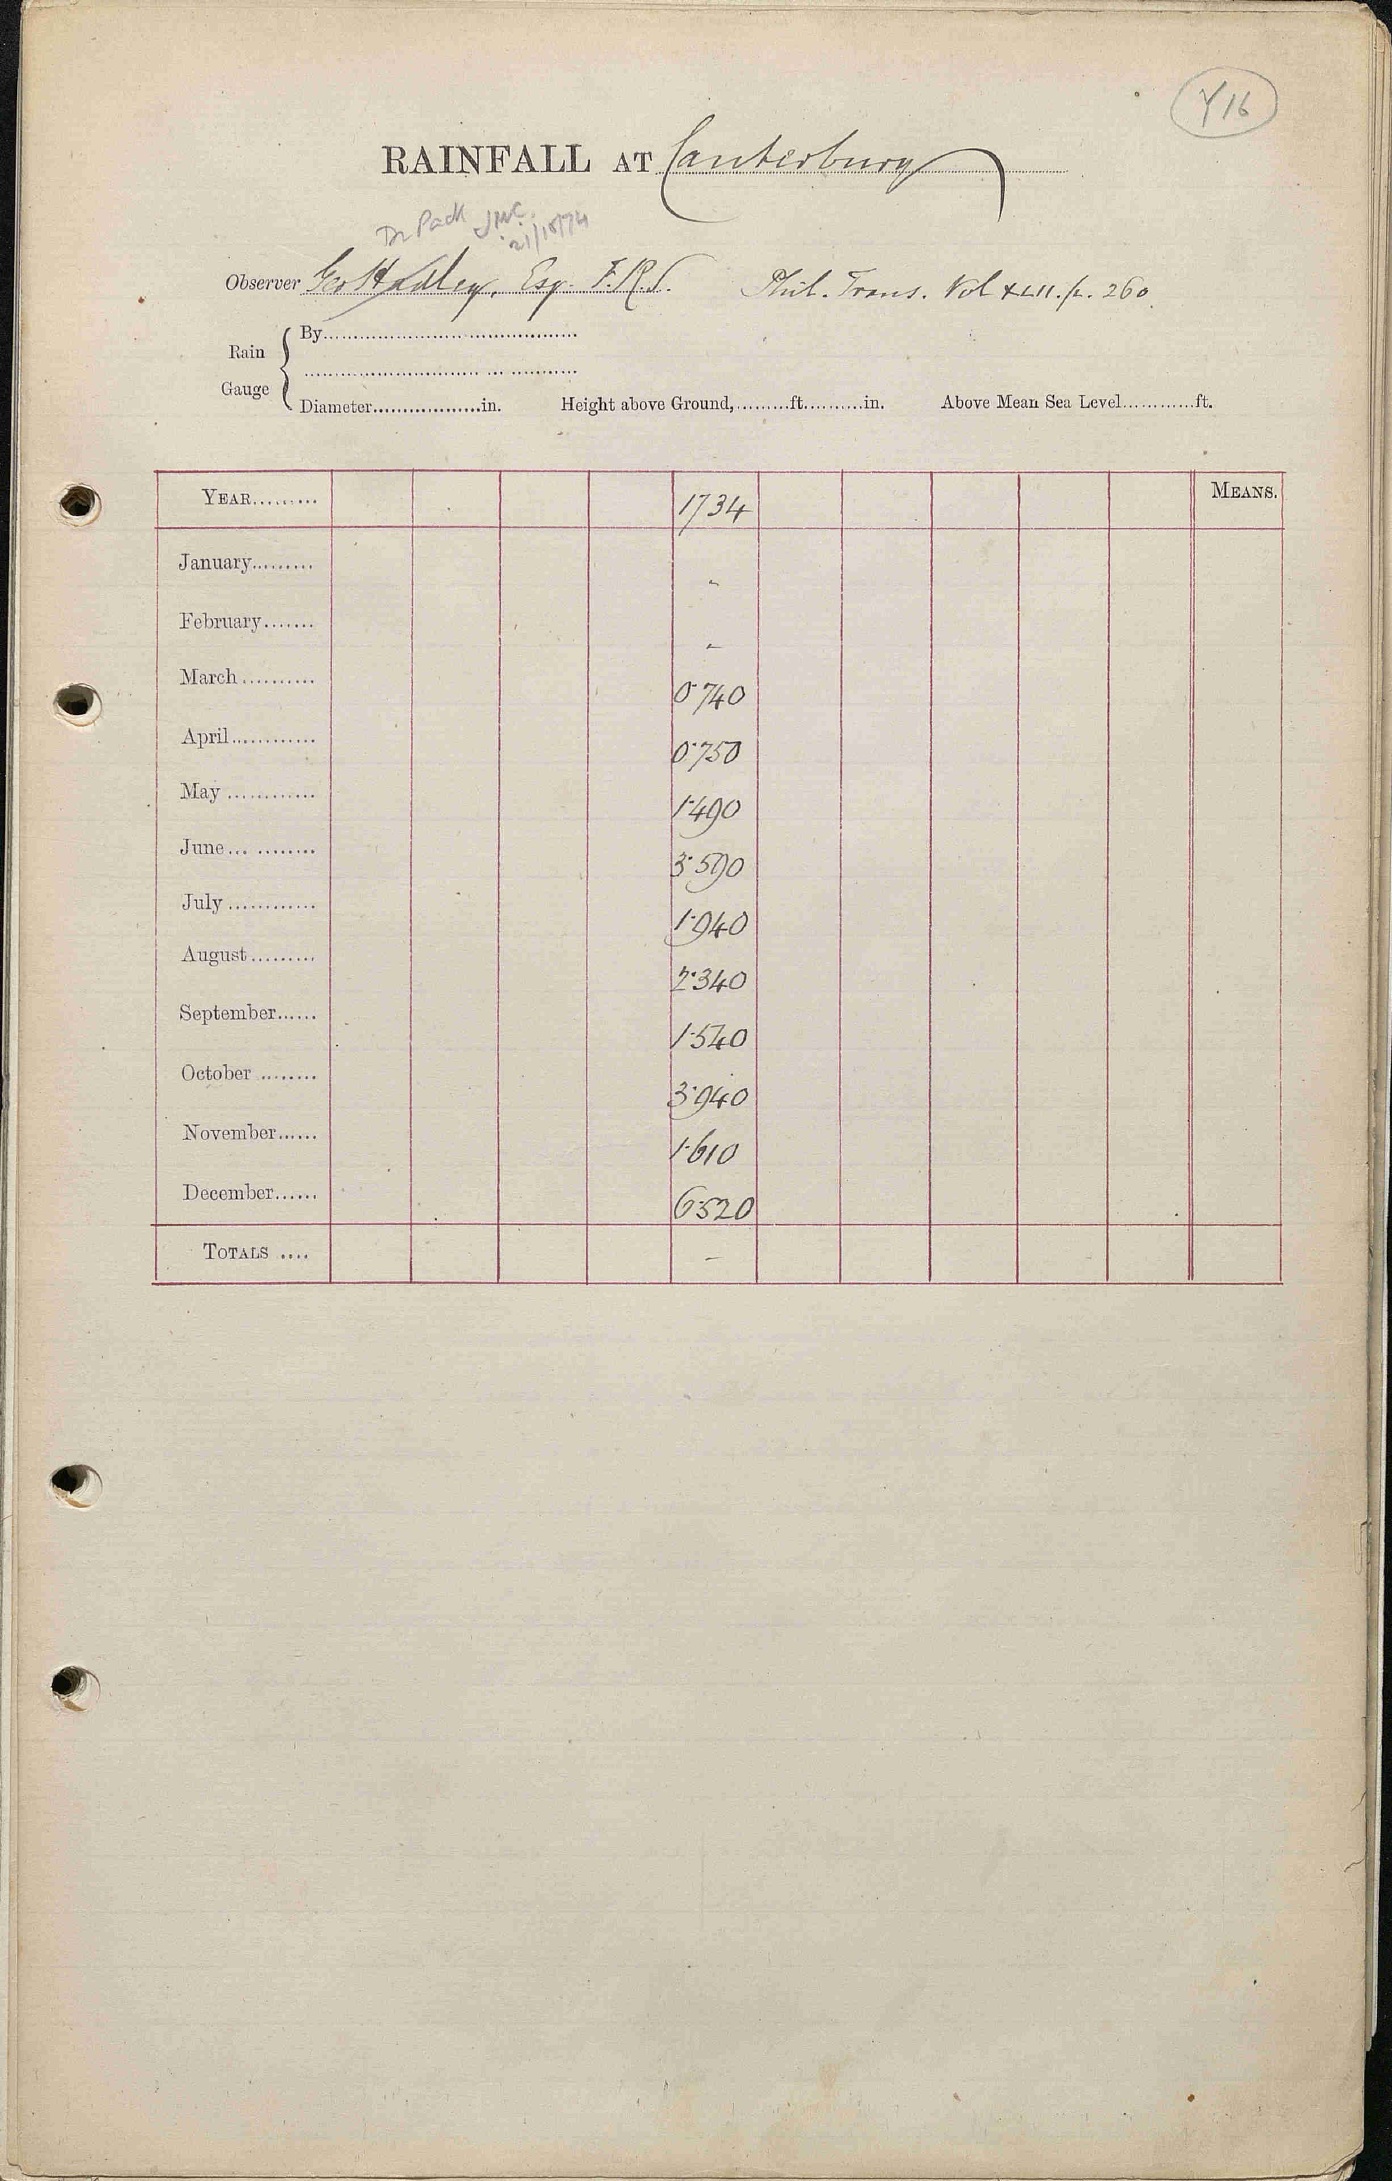 Y16
RAINFALL AT Canterbury
Dr Pack JMC.
21/10/74
Observer Geo Hadley, Esq. F.R.S. Phil. Trans. Vol XLII. p. 260.
Rain Gauge
By
Diameter in. Height above Ground, ft. in. Above Mean Sea Level ft.
YEAR 1734 MEANS.
January -
February -
March 0.740
April 0.750
May 1.490
June 3.590
July 1.940
August 2.340
September 1.540
October 3.940
November 1.610
December 6.520
TOTALS -